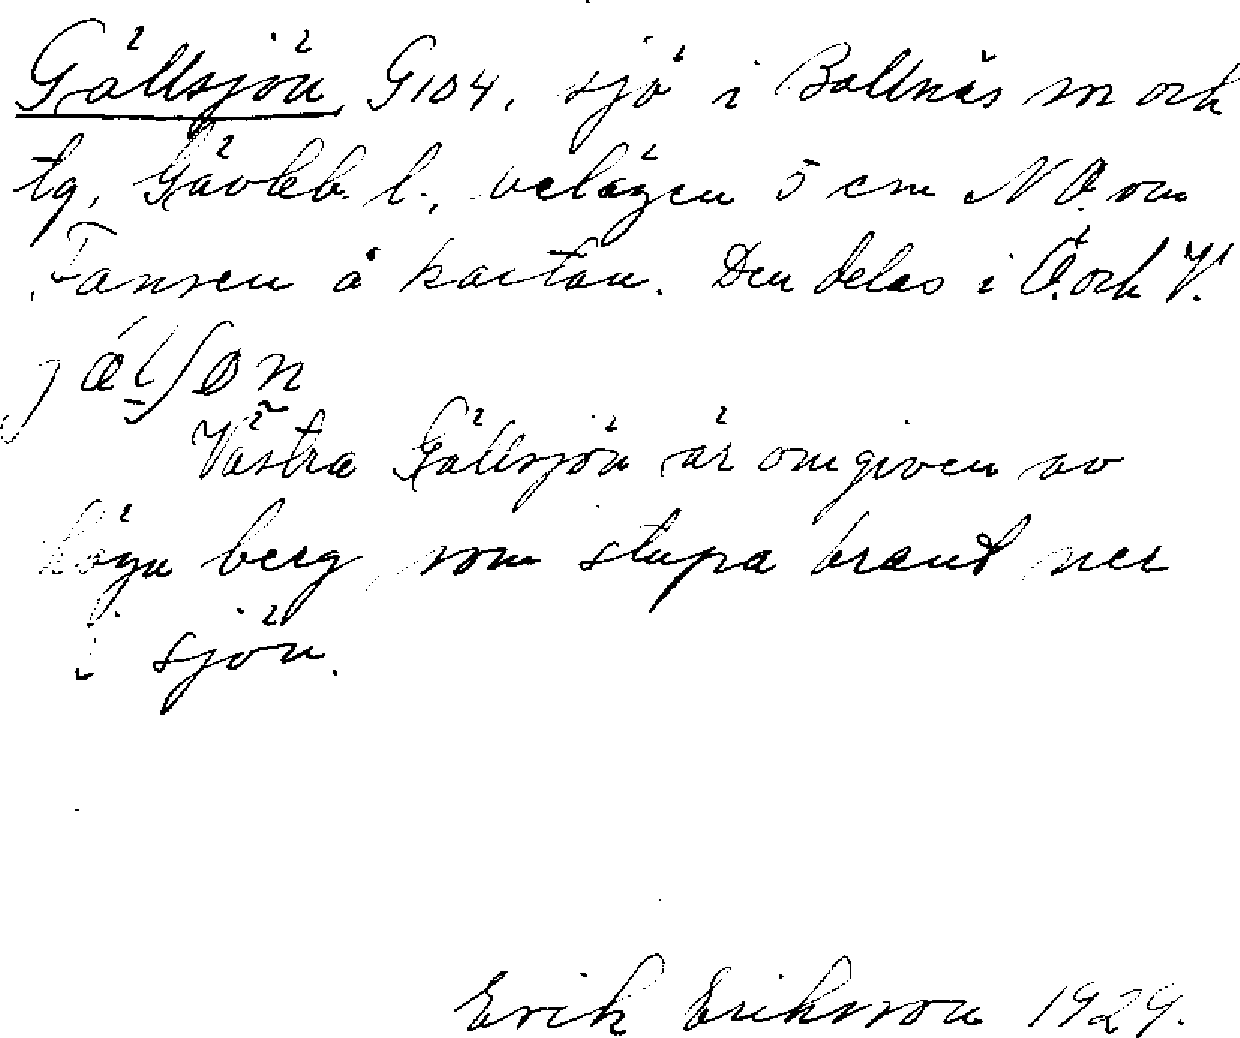 Gällsjön G104, sjö i Bollnäs sn och
tg, Gävleb. l., belägen 5 cm N.O. om
Fansen å kartan. Den delas i Ö. och V.
Västra Gällsjön är omgiven av
höga berg, som stupa brant ner
i sjön.
Erik Eriksson 1929.